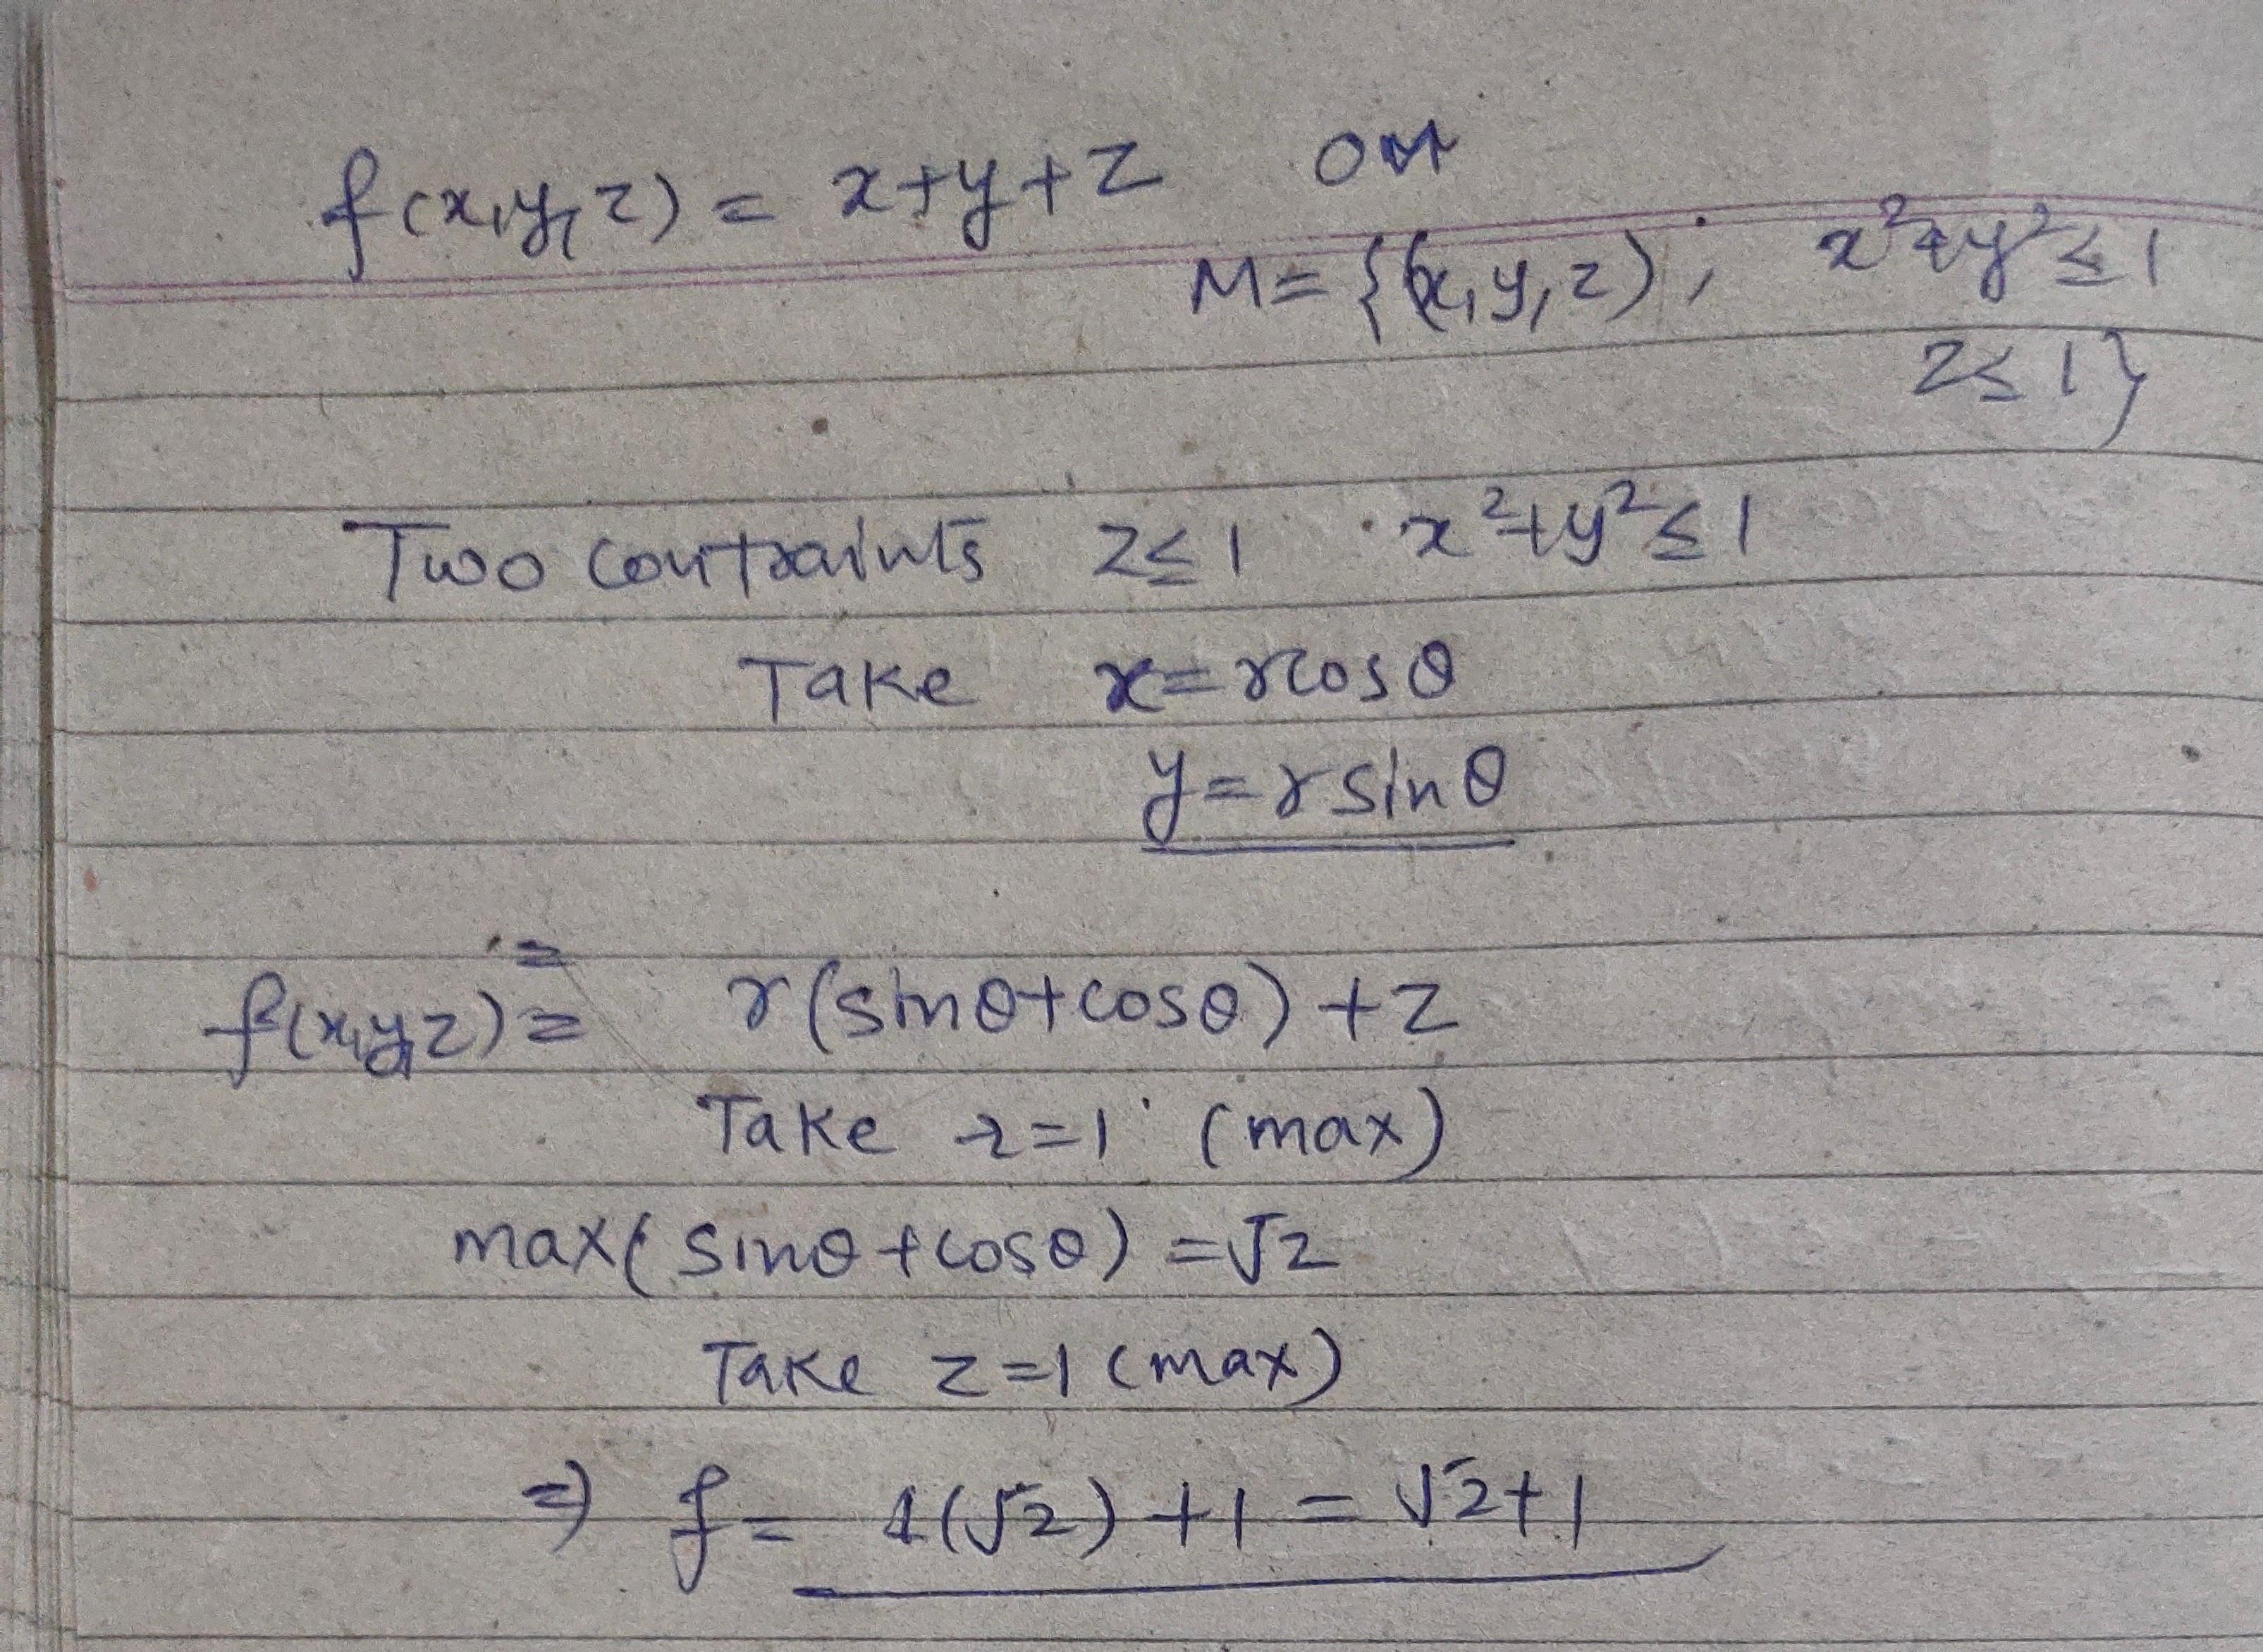 f(x,y,z) = x+y+z on
M= {(x,y,z); x²+y²≤1
z≤1}
Two contraints z≤1 x²+y²≤1
Take x=rcosθ
y=rsinθ
=
f(x,y,z)= r(sinθ+cosθ)+z
Take r=1 (max)
max(sinθ+cosθ) =√2
Take z=1 (max)
⇒ f= 1(√2)+1 = √2+1